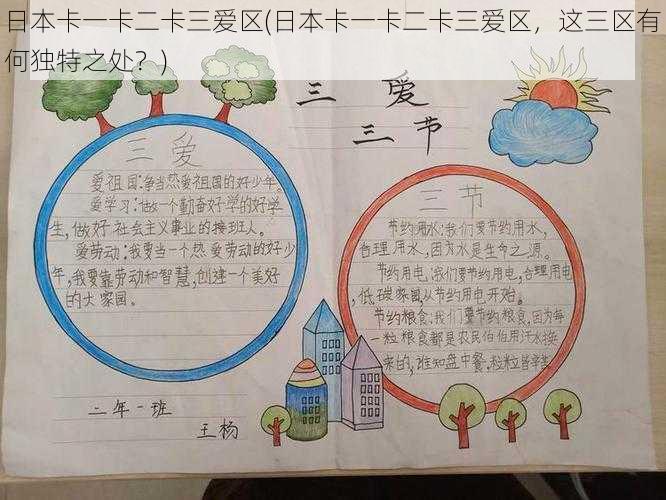 日本卡一卡二卡三爱区(日本卡一卡二卡三爱区，这三区有
何独特之处？)
三 爱
三节
三爱
爱祖国:争当热爱祖国的好少年。
爱学习:做一个勤奋好学的好学
生,做好社会主义事业的接班人。
爱劳动:我要当一个热爱劳动的好少
年,我要靠劳动和智慧,创建一个美好
的大家园。
三节
节约用水:我们要节约用水,
合理用水,因为水是生命之源。
节约用电:我们要节约用电,合理用电
,低碳家园从节约用电开始。
节约粮食:我们要节约粮食,因为每
一粒粮食都是农民伯伯用汗水换
来的,谁知盘中餐,粒粒皆辛苦
二年一班
王杨